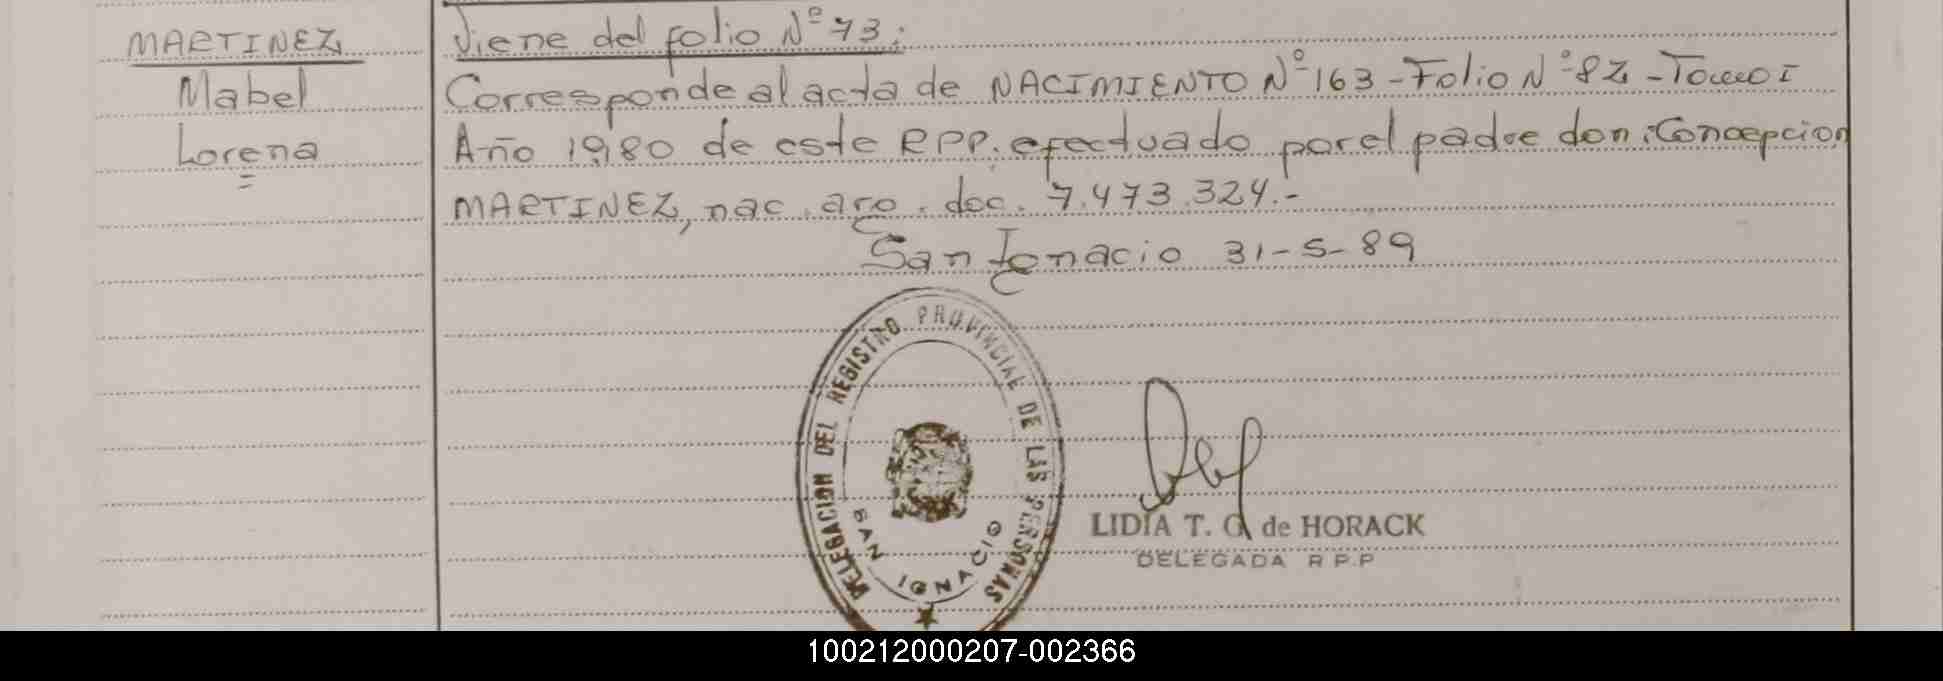 MARTINEZ
Mabel
Lorena
=
Viene del folio Nº 73:
Corresponde al acta de NACIMIENTO Nº 163 - Folio Nº 82 - Tomo I
Año 1980 de este RPP. efectuado por el padre don: Concepcion
MARTINEZ, nac. arg. doc. 7.473.324.-
San Ignacio 31-5-89
DELEGACION DEL REGISTRO PROVINCIAL DE LAS PERSONAS
SAN IGNACIO
LIDIA T. G. de HORACK
DELEGADA R P.P
100212000207-002366